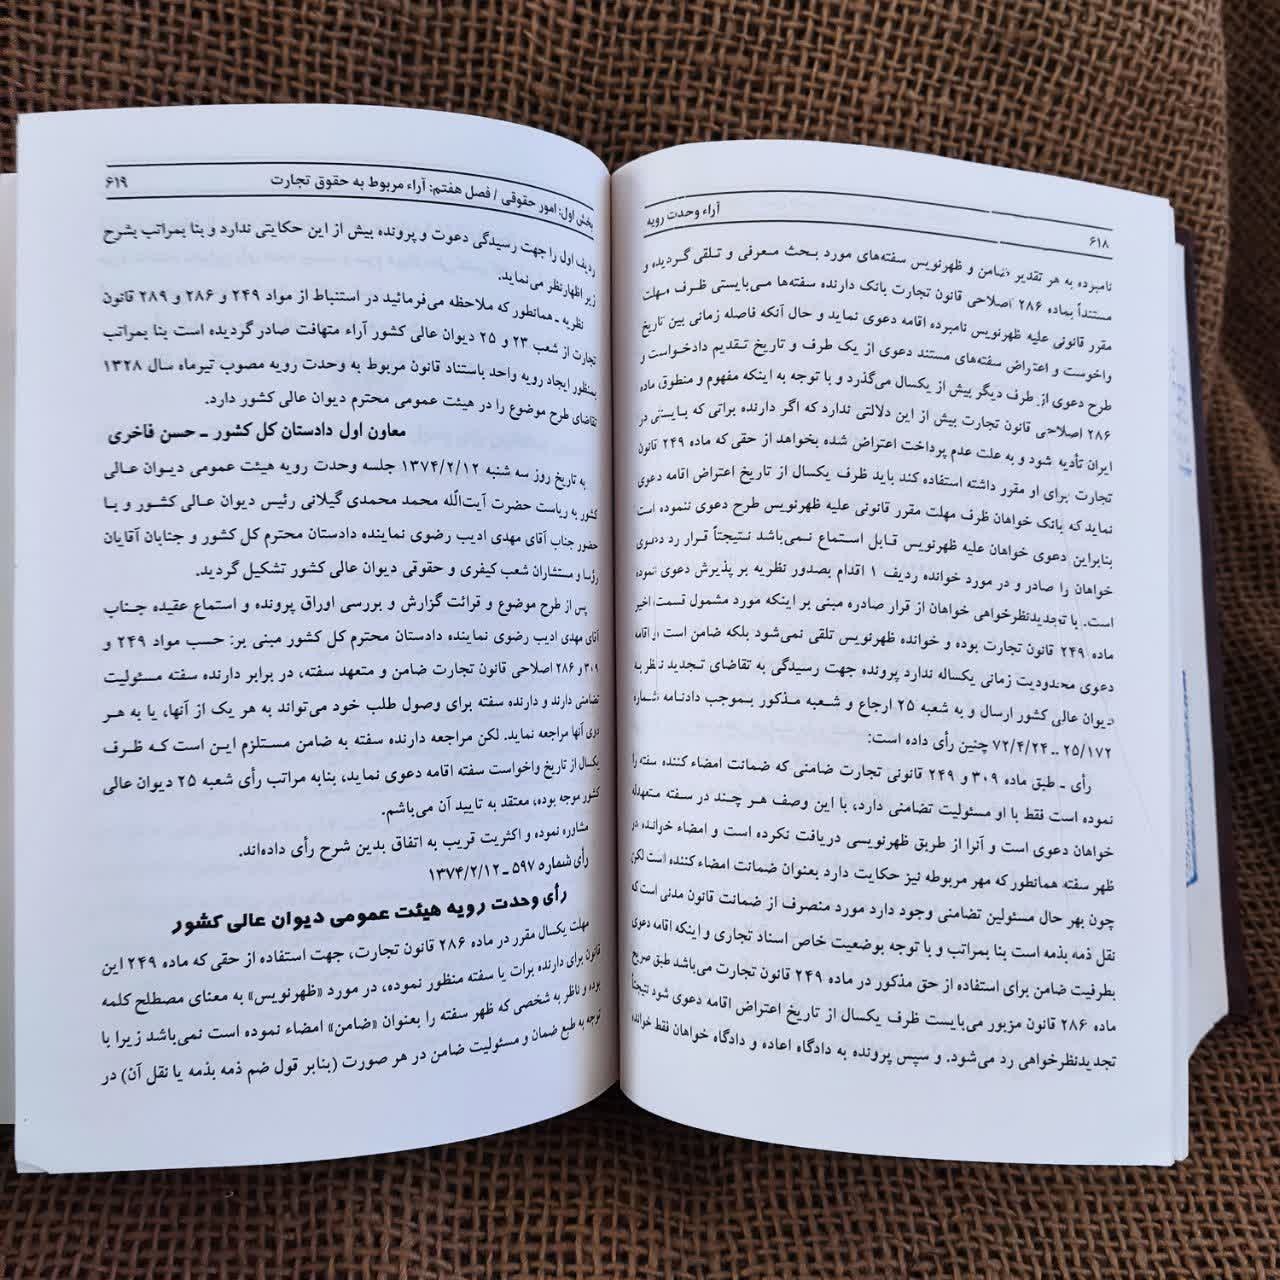 ۶۱۸
آراء وحدت رویه
نامبرده به هر تقدیر ضامن و ظهرنویس سفته‌های مورد بحث معرفی و تلقی گردیده و
مستنداً بماده ۲۸۶ اصلاحی قانون تجارت بانک دارنده سفته‌ها می‌بایستی ظرف مهلت
مقرر قانونی علیه ظهرنویس نامبرده اقامه دعوی نماید و حال آنکه فاصله زمانی بین تاریخ
واخوست و اعتراض سفته‌های مستند دعوی از یک طرف و تاریخ تقدیم دادخواست و
طرح دعوی از طرف دیگر بیش از یکسال می‌گذرد و با توجه به اینکه مفهوم و منطوق ماده
۲۸۶ اصلاحی قانون تجارت بیش از این دلالتی ندارد که اگر دارنده براتی که بایستی در
ایران تأدیه شود و به علت عدم پرداخت اعتراض شده بخواهد از حقی که ماده ۲۴۹ قانون
تجارت برای او مقرر داشته استفاده کند باید ظرف یکسال از تاریخ اعتراض اقامه دعوی
نماید که بانک خواهان ظرف مهلت مقرر قانونی علیه ظهرنویس طرح دعوی ننموده است
بنابراین دعوی خواهان علیه ظهرنویس قابل استماع نمی‌باشد نتیجتاً قرار رد دعوی
خواهان را صادر و در مورد خوانده ردیف ۱ اقدام بصدور نظریه بر پذیرش دعوی نموده
است. با تجدیدنظرخواهی خواهان از قرار صادره مبنی بر اینکه مورد مشمول قسمت اخیر
ماده ۲۴۹ قانون تجارت بوده و خوانده ظهرنویس تلقی نمی‌شود بلکه ضامن است و اقامه
دعوی محدودیت زمانی یکساله ندارد پرونده جهت رسیدگی به تقاضای تجدید نظر به
دیوان عالی کشور ارسال و به شعبه ۲۵ ارجاع و شعبه مذکور بموجب دادنامه شماره
۲۵/۱۷۲ ــ ۷۲/۴/۲۴ چنین رأی داده است:
رأی ـ طبق ماده ۳۰۹ و ۲۴۹ قانونی تجارت ضامنی که ضمانت امضاء کننده سفته را
نموده است فقط با او مسئولیت تضامنی دارد، با این وصف هر چند در سفته متعهدله
خواهان دعوی است و آنرا از طریق ظهرنویسی دریافت نکرده است و امضاء خوانده در
ظهر سفته همانطور که مهر مربوطه نیز حکایت دارد بعنوان ضمانت امضاء کننده است لکن
چون بهر حال مسئولین تضامنی وجود دارد مورد منصرف از ضمانت قانون مدنی است که
نقل ذمه بذمه است بنا بمراتب و با توجه بوضعیت خاص اسناد تجاری و اینکه اقامه دعوی
بطرفیت ضامن برای استفاده از حق مذکور در ماده ۲۴۹ قانون تجارت می‌باشد طبق صریح
ماده ۲۸۶ قانون مزبور می‌بایست ظرف یکسال از تاریخ اعتراض اقامه دعوی شود نتیجتاً
تجدیدنظرخواهی رد می‌شود. و سپس پرونده به دادگاه اعاده و دادگاه خواهان فقط خوانده
بخش اول: امور حقوقی / فصل هفتم: آراء مربوط به حقوق تجارت
۶۱۹
ردیف اول را جهت رسیدگی دعوت و پرونده بیش از این حکایتی ندارد و بنا بمراتب بشرح
زیر اظهارنظر می‌نماید.
نظریه ـ همانطور که ملاحظه می‌فرمائید در استنباط از مواد ۲۴۹ و ۲۸۶ و ۲۸۹ قانون
تجارت از شعب ۲۳ و ۲۵ دیوان عالی کشور آراء متهافت صادر گردیده است بنا بمراتب
بمنظور ایجاد رویه واحد باستناد قانون مربوط به وحدت رویه مصوب تیرماه سال ۱۳۲۸
تقاضای طرح موضوع را در هیئت عمومی محترم دیوان عالی کشور دارد.
معاون اول دادستان کل کشور ـ حسن فاخری
به تاریخ روز سه شنبه ۱۳۷۴/۲/۱۲ جلسه وحدت رویه هیئت عمومی دیوان عالی
کشور به ریاست حضرت آیت‌اللّه محمد محمدی گیلانی رئیس دیوان عالی کشور و با
حضور جناب آقای مهدی ادیب رضوی نماینده دادستان محترم کل کشور و جنابان آقایان
رؤسا و مستشاران شعب کیفری و حقوقی دیوان عالی کشور تشکیل گردید.
پس از طرح موضوع و قرائت گزارش و بررسی اوراق پرونده و استماع عقیده جناب
آقای مهدی ادیب رضوی نماینده دادستان محترم کل کشور مبنی بر: حسب مواد ۲۴۹ و
۳۰۹ و ۲۸۶ اصلاحی قانون تجارت ضامن و متعهد سفته، در برابر دارنده سفته مسئولیت
تضامنی دارند و دارنده سفته برای وصول طلب خود می‌تواند به هر یک از آنها، یا به هر
دوی آنها مراجعه نماید. لکن مراجعه دارنده سفته به ضامن مستلزم این است که ظرف
یکسال از تاریخ واخواست سفته اقامه دعوی نماید، بنابه مراتب رأی شعبه ۲۵ دیوان عالی
کشور موجه بوده، معتقد به تایید آن می‌باشم.
مشاوره نموده و اکثریت قریب به اتفاق بدین شرح رأی داده‌اند.
رأی شماره ۵۹۷ ــ ۱۳۷۴/۲/۱۲
رأی وحدت رویه هیئت عمومی دیوان عالی کشور
مهلت یکسال مقرر در ماده ۲۸۶ قانون تجارت، جهت استفاده از حقی که ماده ۲۴۹ این
قانون برای دارنده برات یا سفته منظور نموده، در مورد «ظهرنویس» به معنای مصطلح کلمه
بوده و ناظر به شخصی که ظهر سفته را بعنوان «ضامن» امضاء نموده است نمی‌باشد زیرا با
توجه به طبع ضمان و مسئولیت ضامن در هر صورت (بنابر قول ضم ذمه بذمه یا نقل آن) در